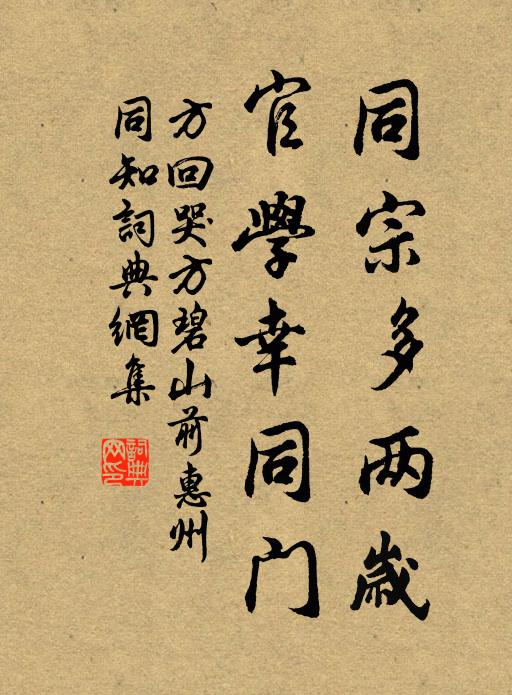 同宗多两歲
官學幸同门
方回哭方碧山前惠州
同知詞典網集
詞典
网印